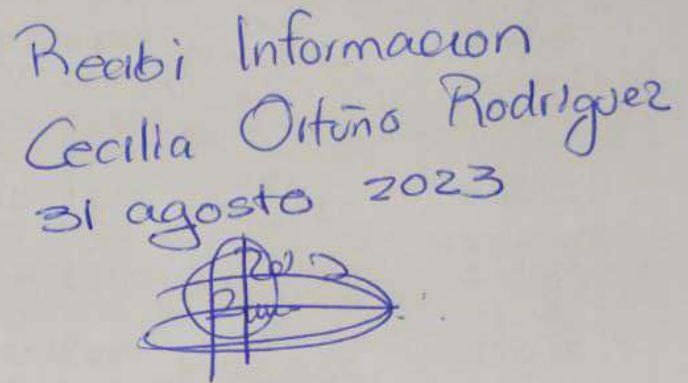 Recibi Informacion
Cecilia Ortuño Rodriguez
31 agosto 2023